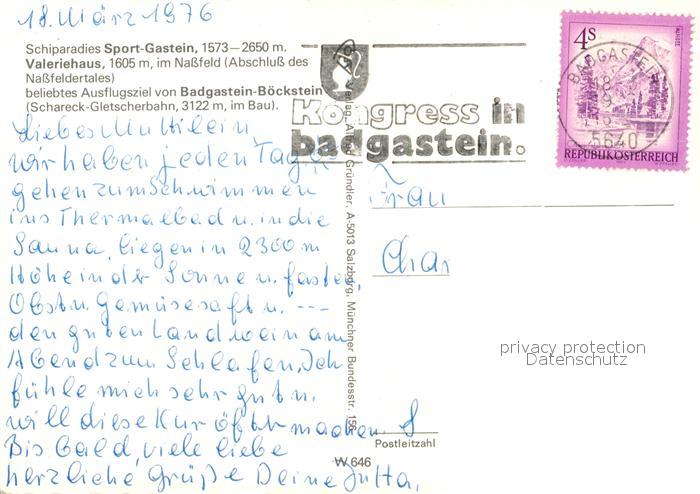 18. März 1976
Schiparadies Sport-Gastein, 1573—2650 m.
Valeriehaus, 1605 m, im Naßfeld (Abschluß des
Naßfeldertales)
beliebtes Ausflugsziel von Badgastein-Böckstein
(Schareck-Gletscherbahn, 3122 m, im Bau).
Liebes Muttilein,
wir haben jeden Tag,
gehen zum Schwimmen
ins Thermalbad u. in die
Sauna, liegen in 2300 m
Höhe in der Sonne u. fasten,
Obst u. Gemüsesaft u. ---
den guten Landwein am
Abend zum Schlafen. Ich
fühle mich sehr gut u.
will diese Kur öfter machen.
Bis bald, viele liebe
herzliche Grüße Deine Jutta.
Verlag Gründler, A-5013 Salzburg, Münchner Bundesstr. 156
W 646
Kongress in
badgastein.
4s
BADGASTEIN
5640
REPUBLIK ÖSTERREICH
Frau
Char
privacy protection
Datenschutz
Postleitzahl